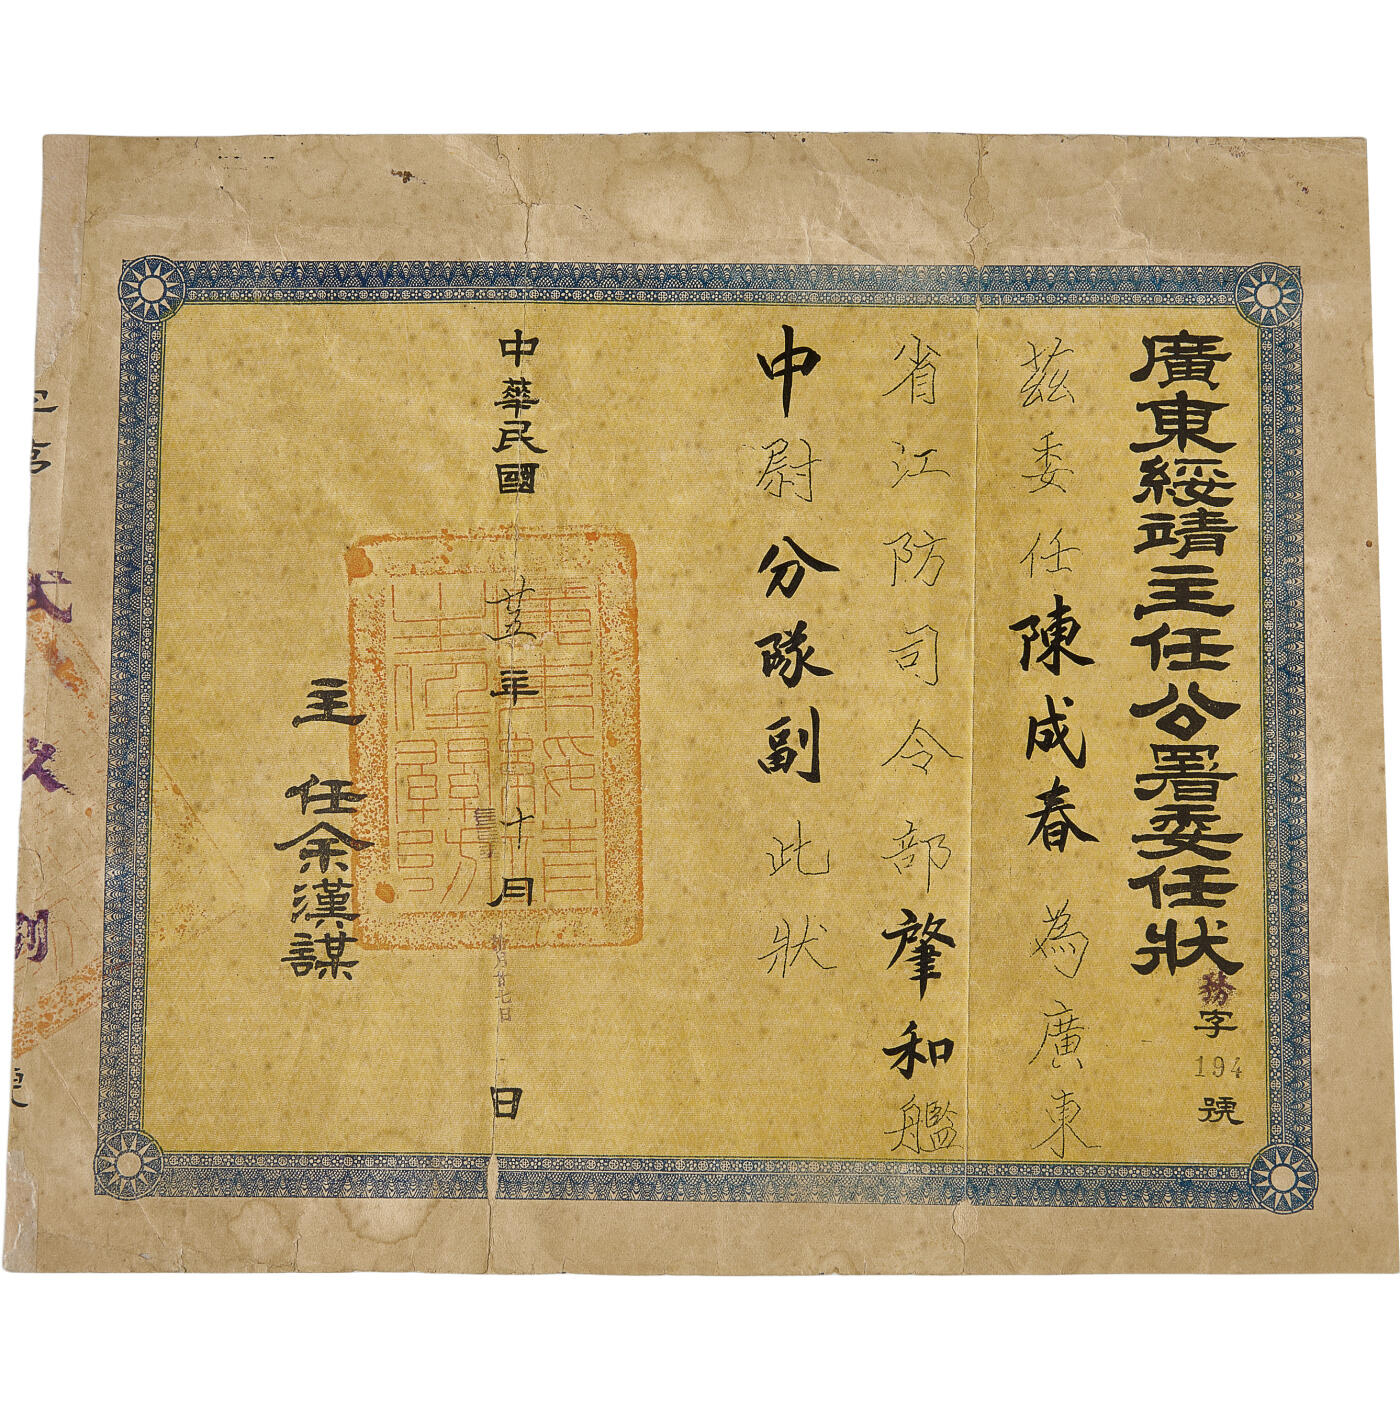 廣東綏靖主任公署委任狀
務字194號
茲委任陳成春為廣東
省江防司令部肇和艦
中尉分隊副此狀
中華民國廿五年十月日
主任余漢謀